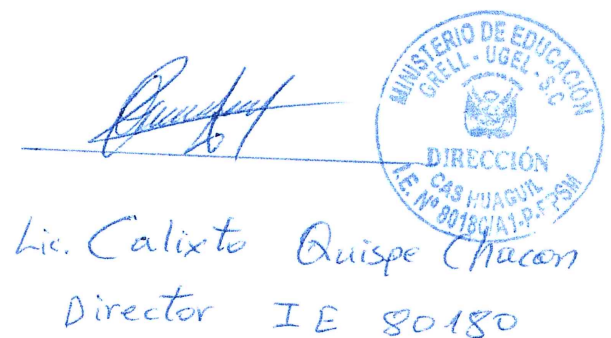 MINISTERIO DE EDUCACIÓN
GRELL - UGEL - S.C
DIRECCIÓN
CAS HUAGUIL
I.E. Nº 80180/A1-P-
Lic. Calixto Quispe Chacon
Director IE 80180